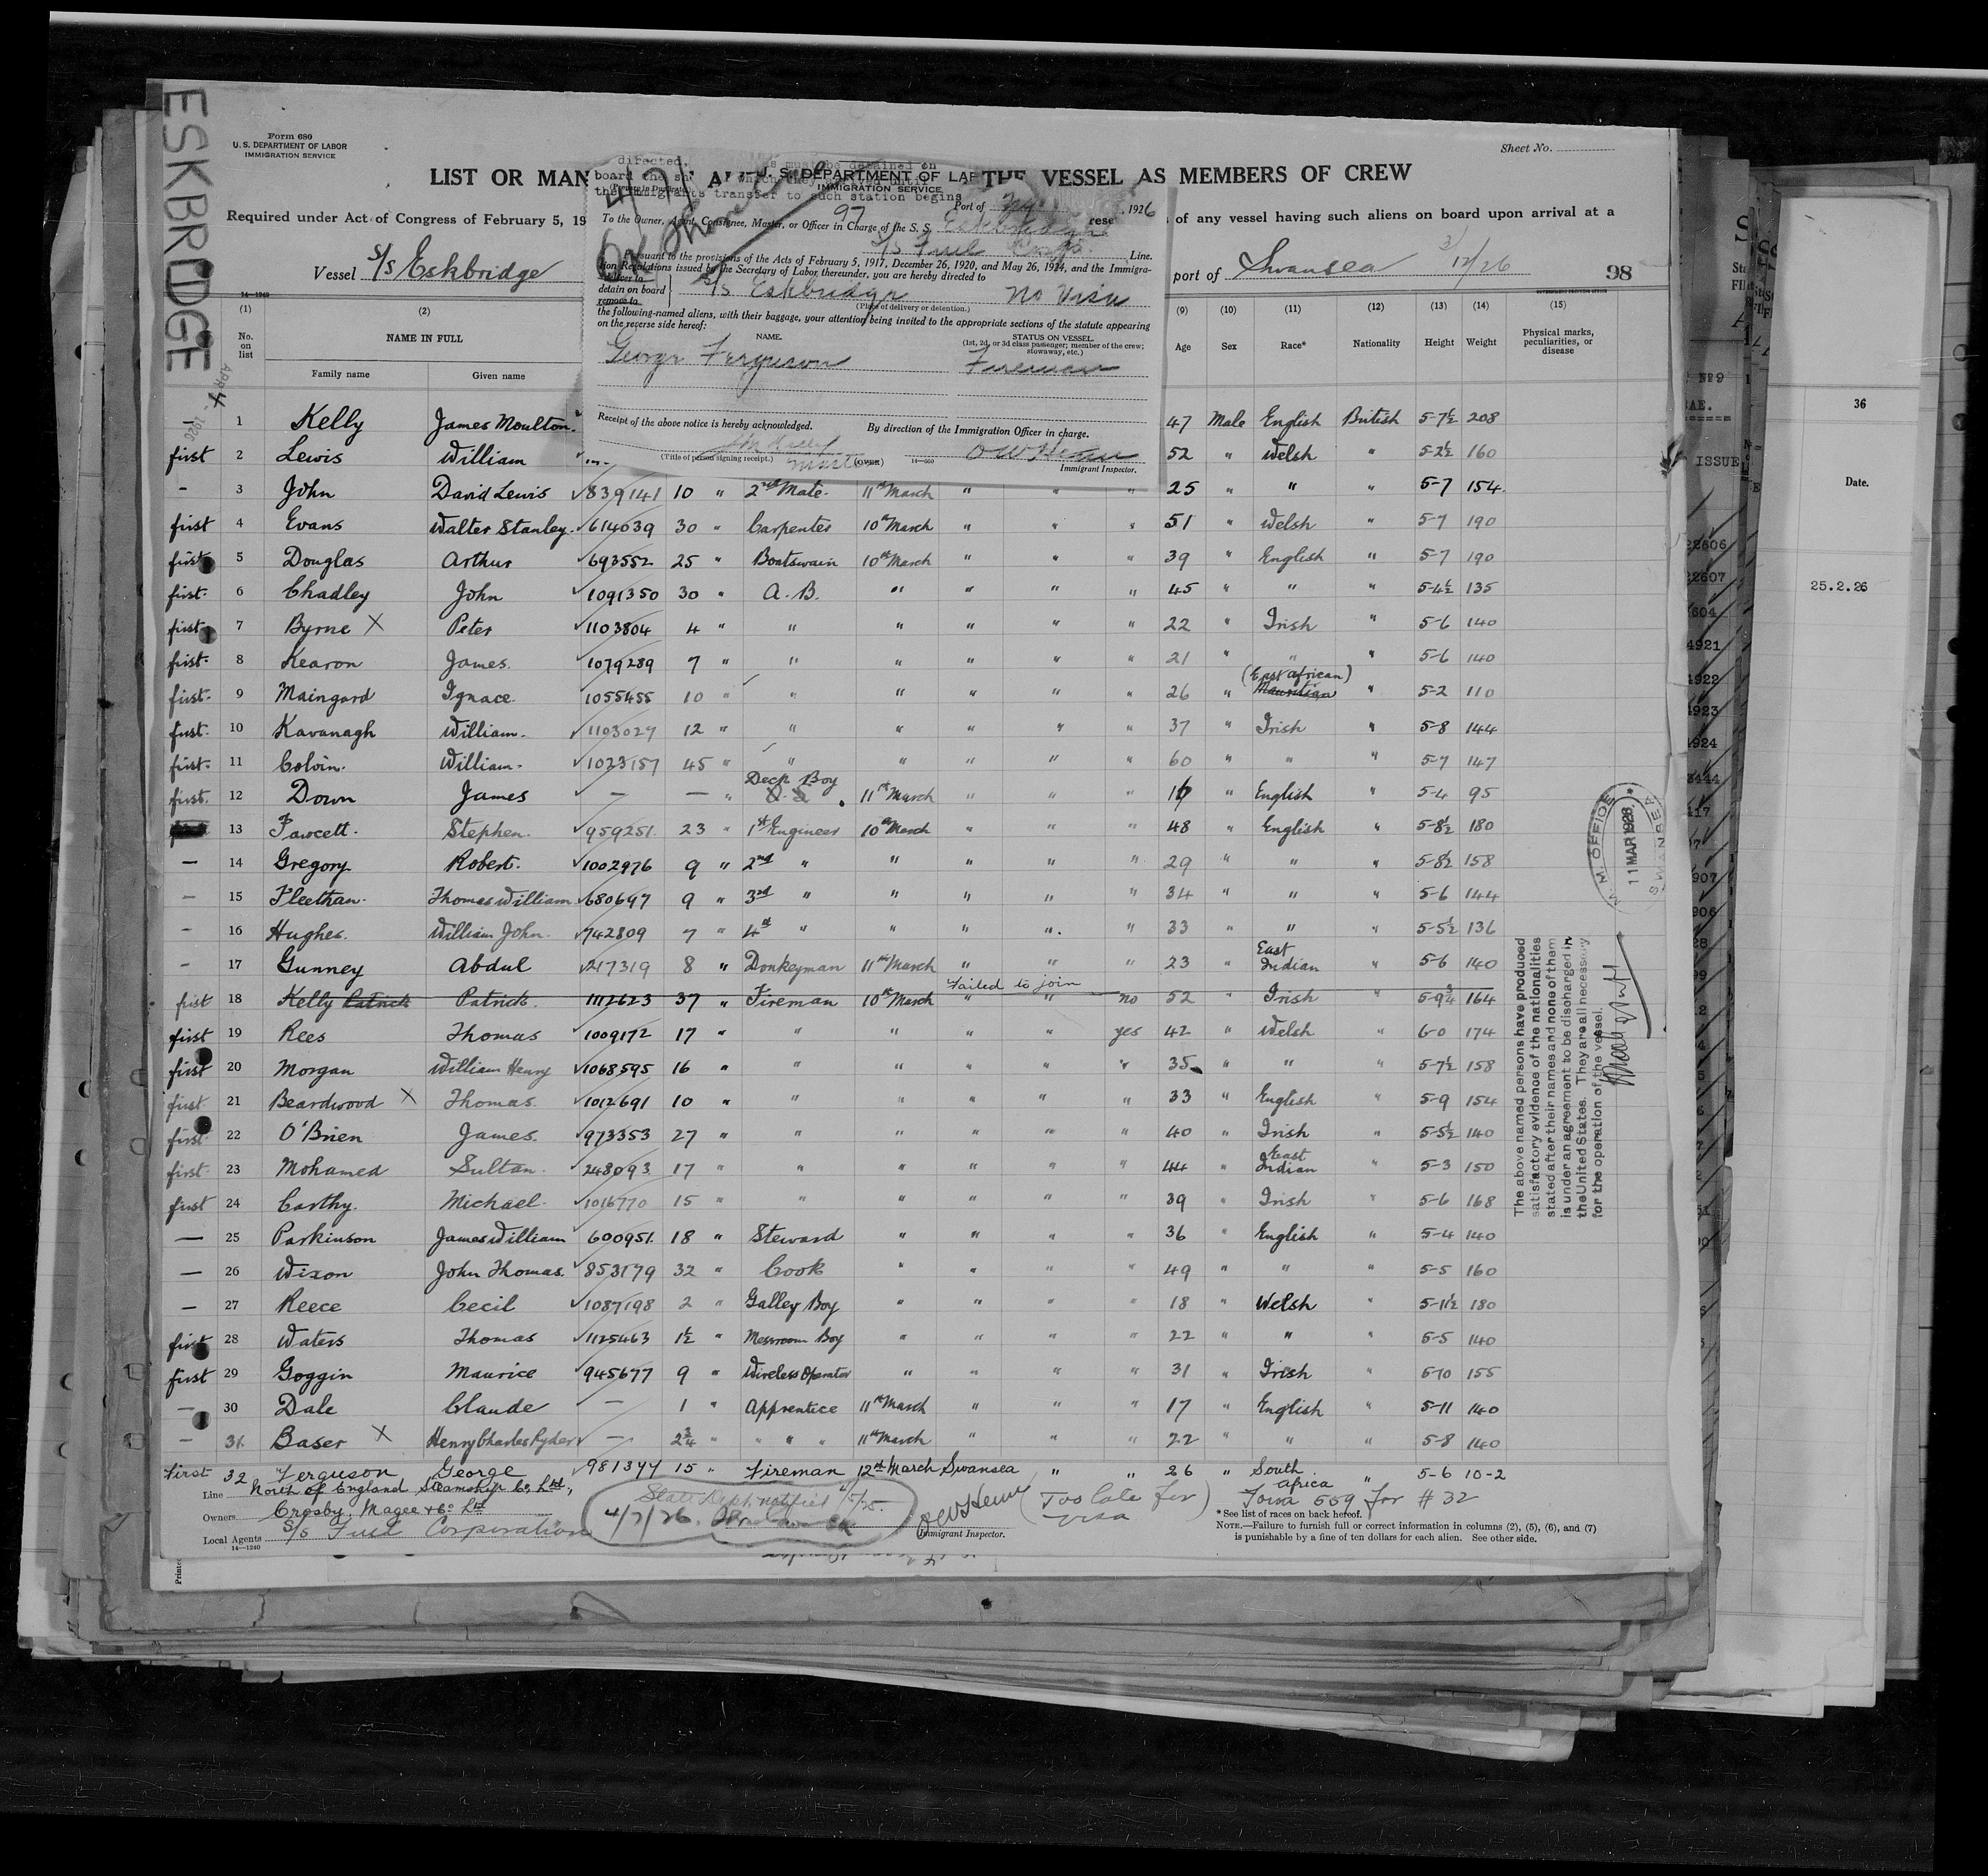 ESKBRIDGE
Form 680
U. S. DEPARTMENT OF LABOR
IMMIGRATION SERVICE
Sheet No.
LIST OR MAN
THE VESSEL AS MEMBERS OF CREW
Required under Act of Congress of February 5, 19
of any vessel having such aliens on board upon arrival at a
Vessel S/S Eskbridge
port of Swansea 3/12/26
98
directed,
must be detained on
board the sh
the immigrants transfer to such station begins
U. S. DEPARTMENT OF LAB
IMMIGRATION SERVICE
Port of NY , 1926
97
To the Owner, Agent, Consignee, Master, or Officer in Charge of the S. S. Eskbridge
S/S Fuel Corp. Line.
Pursuant to the provisions of the Acts of February 5, 1917, December 26, 1920, and May 26, 1924, and the Immigra-
tion Regulations issued by the Secretary of Labor thereunder, you are hereby directed to
deliver to
detain on board
remove to
S/S Eskbridge No Visa
(Place of delivery or detention.)
the following-named aliens, with their baggage, your attention being invited to the appropriate sections of the statute appearing
on the reverse side hereof:
NAME. STATUS ON VESSEL.
(1st, 2d, or 3d class passenger; member of the crew;
stowaway, etc.)
George Ferguson Fireman
Receipt of the above notice is hereby acknowledged. By direction of the Immigration Officer in charge.
(Title of person signing receipt.) Master (OVER) 14—660 O W Henn
Immigrant Inspector.
14—1240
(1) (2) (9) (10) (11) (12) (13) (14) (15)
No. on list NAME IN FULL Age Sex Race* Nationality Height Weight Physical marks, peculiarities, or disease
Family name Given name
APR 4 - 1926
1 Kelly James Moulton 47 Male English British 5-7½ 208
first 2 Lewis William 52 " Welsh " 5-2½ 160
- 3 John David Lewis 839141 10 " 2nd Mate. 11th March " " " 25 " " " 5-7 154
first 4 Evans Walter Stanley. 614039 30 " Carpenter 10th March " " " 51 " Welsh " 5-7 190
first 5 Douglas Arthur 693552 25 " Boatswain 10th March " " " 39 " English " 5-7 190
first. 6 Chadley John 1091350 30 " A.B. " " " " 45 " " " 5-4½ 135
first 7 Byrne X Peter 1103804 4 " " " " " " 22 " Irish " 5-6 140
first. 8 Kearon James. 1079289 7 " " " " " " 21 " " " 5-6 140
first. 9 Maingard Ignace. 1055455 10 " " " " " " 26 " Mauritian (East African) " 5-2 110
first. 10 Kavanagh William. 1103027 12 " " " " " " 37 " Irish " 5-8 144
first. 11 Colvin. William. 1023157 45 " " " " " " 60 " " " 5-7 147
first. 12 Down James — — " Deck Boy 11th March " " " 16 " English " 5-4 95
13 Fawcett. Stephen. 959251 23 " 1st Engineer 10th March " " " 48 " English " 5-8½ 180
— 14 Gregory Robert. 1002976 9 " 2nd " " " " " 29 " " " 5-8½ 158
- 15 Fleethan. Thomas William 680697 9 " 3rd " " " " " 34 " " " 5-6 144
- 16 Hughes. William John. 742809 7 " 4th " " " " " 33 " " " 5-5½ 136
- 17 Gunney Abdul 217319 8 " Donkeyman 11th March " " " 23 " East Indian " 5-6 140
first 18 Kelly Patrick Patrick. 1112623 37 " Fireman 10th March " Failed to join " no 52 " Irish " 5-9¾ 164
first 19 Rees Thomas 1009172 17 " " " " " yes 42 " Welsh " 6-0 174
first 20 Morgan William Henry 1068595 16 " " " " " " 35 " " " 5-7½ 158
first 21 Beardwood X Thomas. 1012691 10 " " " " " " 33 " English " 5-9 154
first 22 O'Brien James. 973353 27 " " " " " " 40 " Irish " 5-5½ 140
first 23 Mohamed Sultan. 248093 17 " " " " " " 44 " East Indian " 5-3 150
first 24 Carthy. Michael. 1016770 15 " " " " " " 39 " Irish " 5-6 168
— 25 Parkinson James William 600951. 18 " Steward " " " " 36 " English " 5-4 140
— 26 Wixon John Thomas. 853179 32 " Cook " " " " 49 " " " 5-5 160
— 27 Reece Cecil 1087198 2 " Galley Boy " " " " 18 " Welsh " 5-11½ 180
first 28 Waters Thomas 1125463 1½ " Messroom Boy " " " " 22 " " " 5-5 140
first 29 Goggin Maurice 945677 9 " Wireless Operator " " " " 31 " Irish " 5-10 155
- 30 Dale Claude — 1 " Apprentice 11th March " " " 17 " English " 5-11 140
- 31 Baser X Henry Charles Ryder — 2¾ " " " " 11th March " " " 22 " " " 5-8 140
First 32 Ferguson George 981344 15 " Fireman 12th March Swansea " " 26 " South Africa " 5-6 10-2
Line North of England Steamship Co. Ltd.,
Owners Crosby, Magee & Co. Ltd
Local Agents S/S Fuel Corporation
14—1240
State Dept. notified
4/7/26.
O W Henn
Immigrant Inspector.
(Too late for visa)
Form 559 for #32
* See list of races on back hereof.
NOTE.—Failure to furnish full or correct information in columns (2), (5), (6), and (7)
is punishable by a fine of ten dollars for each alien. See other side.
M. M. OFFICE
11 MAR 1926
SWANSEA
The above named persons have produced
satisfactory evidence of the nationalities
stated after their names and none of them
is under an agreement to be discharged in
the United States. They are all necessary
for the operation of the vessel.
Nº 9
ISSUE
22606
22607
604
4921
4922
4923
4924
36
Date.
25.2.26